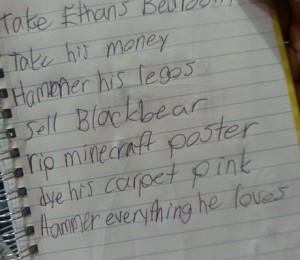 take Ethans Bedroom
Take his money
Hammer his legos
Sell Blackbear
rip minecraft poster
dye his carpet pink
Hammer everything he loves